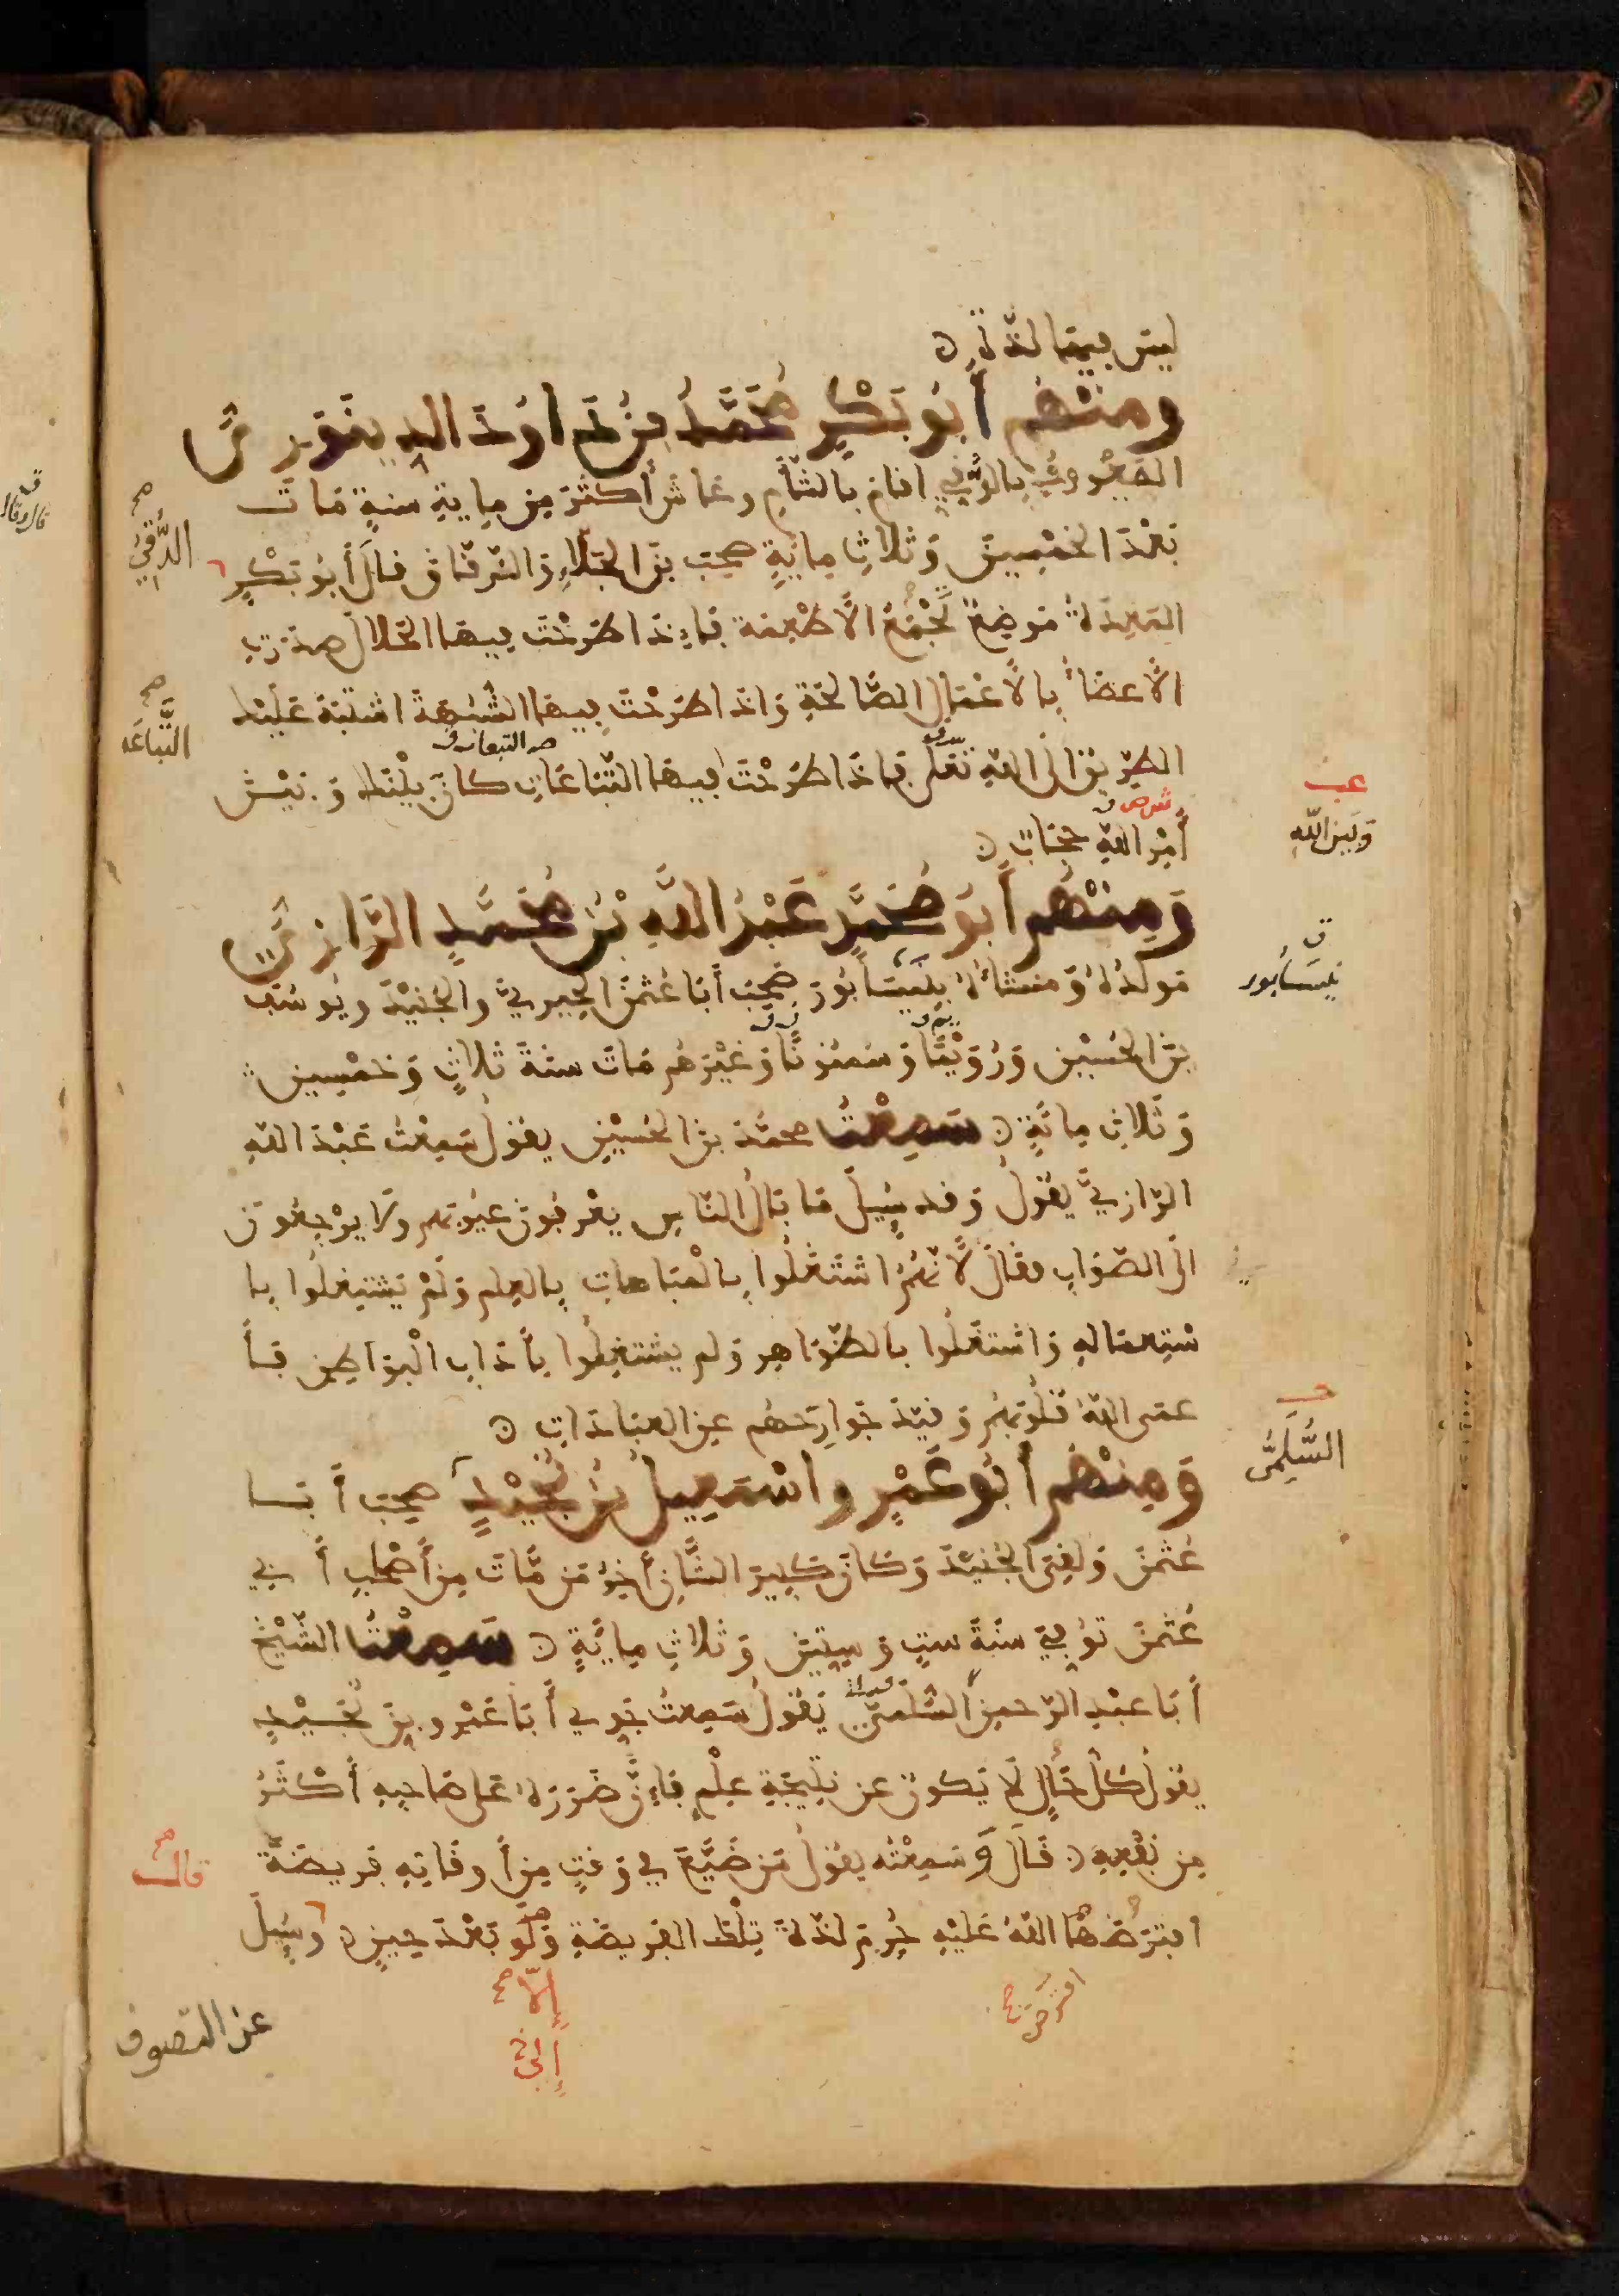 ليس فيها لذة
ومنهم أبو بكر محمد بن داود الدينوري
المعروف بالدقي اقام بالشام وعاش أكثر من ماية سنة مات
بعد الخمسين وثلاث ماية صحب بن الجلاء والزقاق قال أبو بكر
المعدة موضع تجمع الأطعمة فإذا طرحت فيها الحلال صدرت
الأعضاء بالأعمال الصالحة وإذا طرحت فيها الشبهة اشتبه عليك
الطريق الى الله تعلى فإذا طرحت فيها التباعات كان بينك وبين
أمر الله حجاب
ومنهم أبو محمد عبد الله بن محمد الرازي
مولده ومنشاه بنيسابور صحب أبا عثمن الحيري والجنيد ويوسف
بن الحسين ورويما وسمنونا وغيرهم مات سنة ثلاث وخمسين
وثلاث مائة سمعت محمد بن الحسين يقول سمعت عبد الله
الرازي يقول وقد سيل ما بال الناس يعرفون عيوبهم ولا يرجعون
الى الصواب فقال لأنهم اشتغلوا بالمباهات بالعلم ولم يشتغلوا با
ستعماله واشتغلوا بالظواهر ولم يشتغلوا بأداب البواطن فأ
عمى الله قلوبهم وقيد جوارحهم عن العبادات
ومنهم أبو عمرو اسمعيل بن نجيد صحب أبا
عثمن ولقى الجنيد وكان كبير الشان أخر من مات من أصحب أبي
عثمن توفي سنة ست وستين وثلاث ماية سمعت الشيخ
أبا عبد الرحمن السلمى يقول سمعت جدي أبا عمرو بن نجيد
يقول كل حال لا يكون عن نتيجة علم فإن ضرره على صاحبه أكثر
من نفعه قال وسمعته يقول من ضيع في وقت من أوقاته فريضة
افترضها الله عليه حرم لذة تلك الفريضة ولو بعد حين وسيل
عن التصوف
الدقي
التباعه
صح التبعات
وبين الله
نيسابور
السلمى
قال
إلا
إلى
افترض